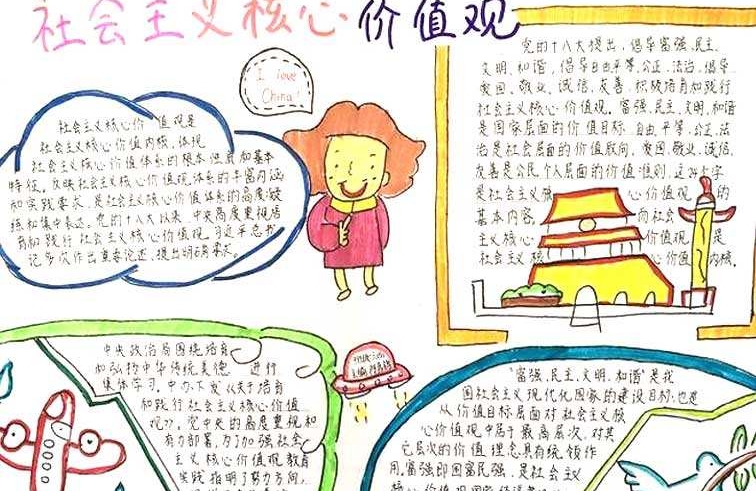 社会主义核心价值观
I love
China!
社会主义核心价值观是
社会主义核心价值内核，体现
社会主义核心价值体系的根本性质和基本
特征，反映社会主义核心价值观体系的丰富内涵
和实践要求，是社会主义核心价值体系的高度凝
练和集中表达。党的十八大以来，中央高度重视培
育和践行社会主义核心价值观。习近平总书
记多次作出重要论述、提出明确要求。
党的十八大提出，倡导富强、民主、
文明、和谐，倡导自由平等、公正、法治，倡导
爱国、敬业、诚信、友善，积极培育和践行
社会主义核心价值观。富强、民主、文明、和谐
是国家层面的价值目标，自由、平等、公正、法
治是社会层面的价值取向，爱国、敬业、诚信、
友善是公民个人层面的价值准则，这24个字
是社会主义核心价值观的
基本内容，而社会
主义核心价值观是
社会主义核心价值内核。
中央政治局围绕培育
和弘扬中华传统美德进行
集体学习。中办下发《关于培育
和践行社会主义核心价值
观》。党中央的高度重视和
有力部署，为了加强社会
主义核心价值观教育
实践指明了努力方向，
"富强、民主、文明、和谐"是我
国社会主义现代化国家的建设目标，也是
从价值目标层面对社会主义核
心价值观中居于最高层次，对其
它层次的价值理念具有统领作
用。富强即国富民强，是社会主义